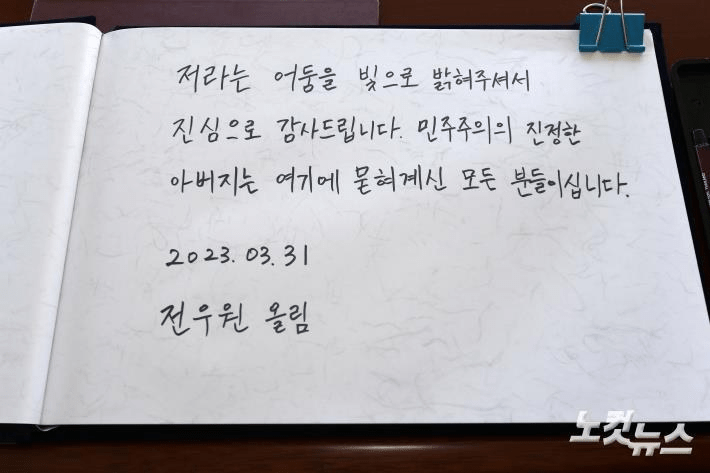 저라는 어둠을 빛으로 밝혀주셔서
진심으로 감사드립니다. 민주주의의 진정한
아버지는 여기에 묻혀계신 모든 분들이십니다.
2023. 03. 31
전우원 올림
노컷뉴스